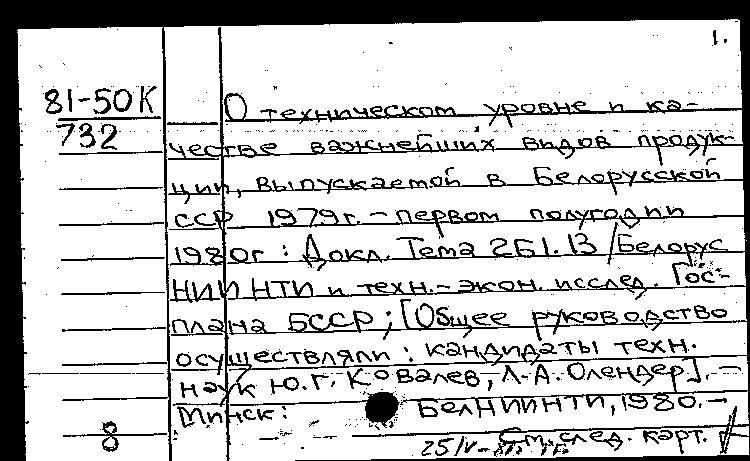 1.
81-50К
732
О техническом уровне и ка-
честве важнейших видов продук-
ции, выпускаемой в Белорусской
ССР 1979г. - первом полугодии
1980г : Докл. Тема 2Б1.13 / Белорус
НИИ НТИ и техн.-экон. исслед. Гос-
плана БССР ; [Общее руководство
осуществляли : кандидаты техн.
наук Ю.Г. Ковалев, Л.А. Олендер]. -
Минск : БелНИИНТИ, 1980. -
8
См. след. карт.
25/V-